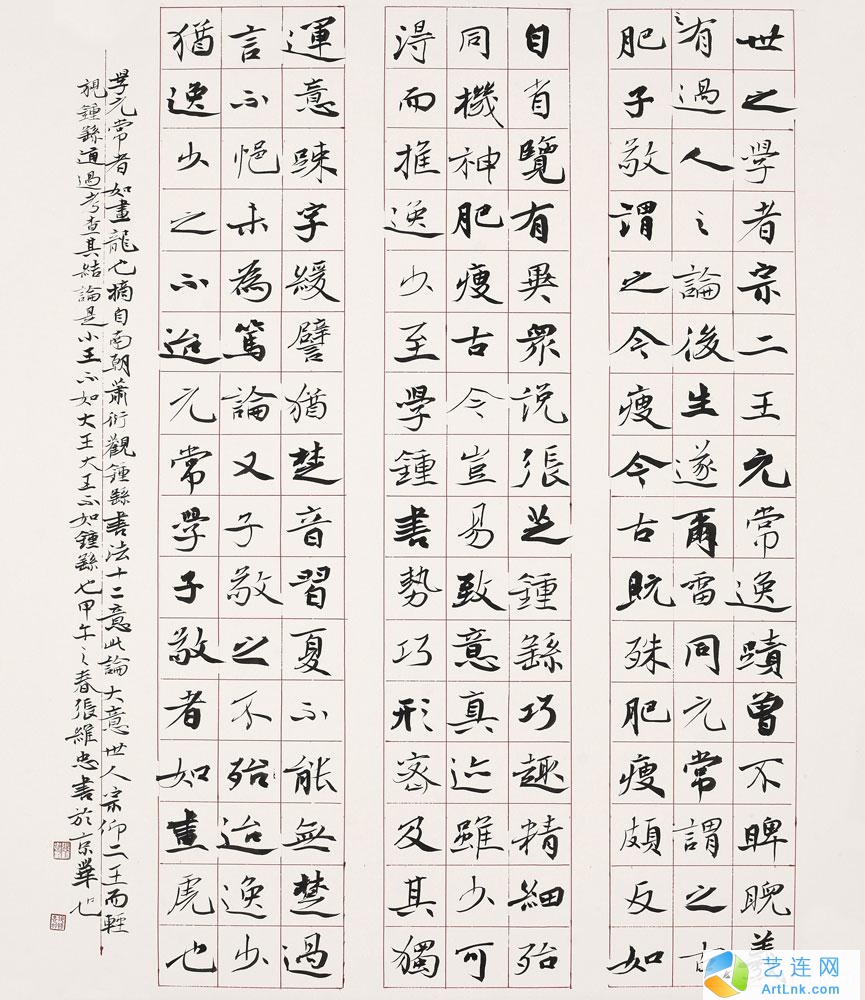 世之學者宗二王元常逸蹟曾不睥睨羲
之有過人之論後生遂爾雷同元常謂之古
肥子敬謂之今瘦今古既殊肥瘦頗反如
自省覽有異眾說張芝鍾繇巧趣精細殆
同機神肥瘦古今豈易致意真迹雖少可
得而推逸少至學鍾書勢巧形密及其獨
運意疎字緩譬猶楚音習夏不能無楚過
言不悒未為篤論又子敬之不殆迨逸少
猶逸少之不迨元常學子敬者如畫虎也
學元常者如畫龍也摘自南朝蕭衍觀鍾繇書法十二意此論大意世人宗仰二王而輕
視鍾繇通過考查其結論是小王不如大王大王不如鍾繇也甲午之春張維忠書於京華也
艺连网
ArtLnk.com